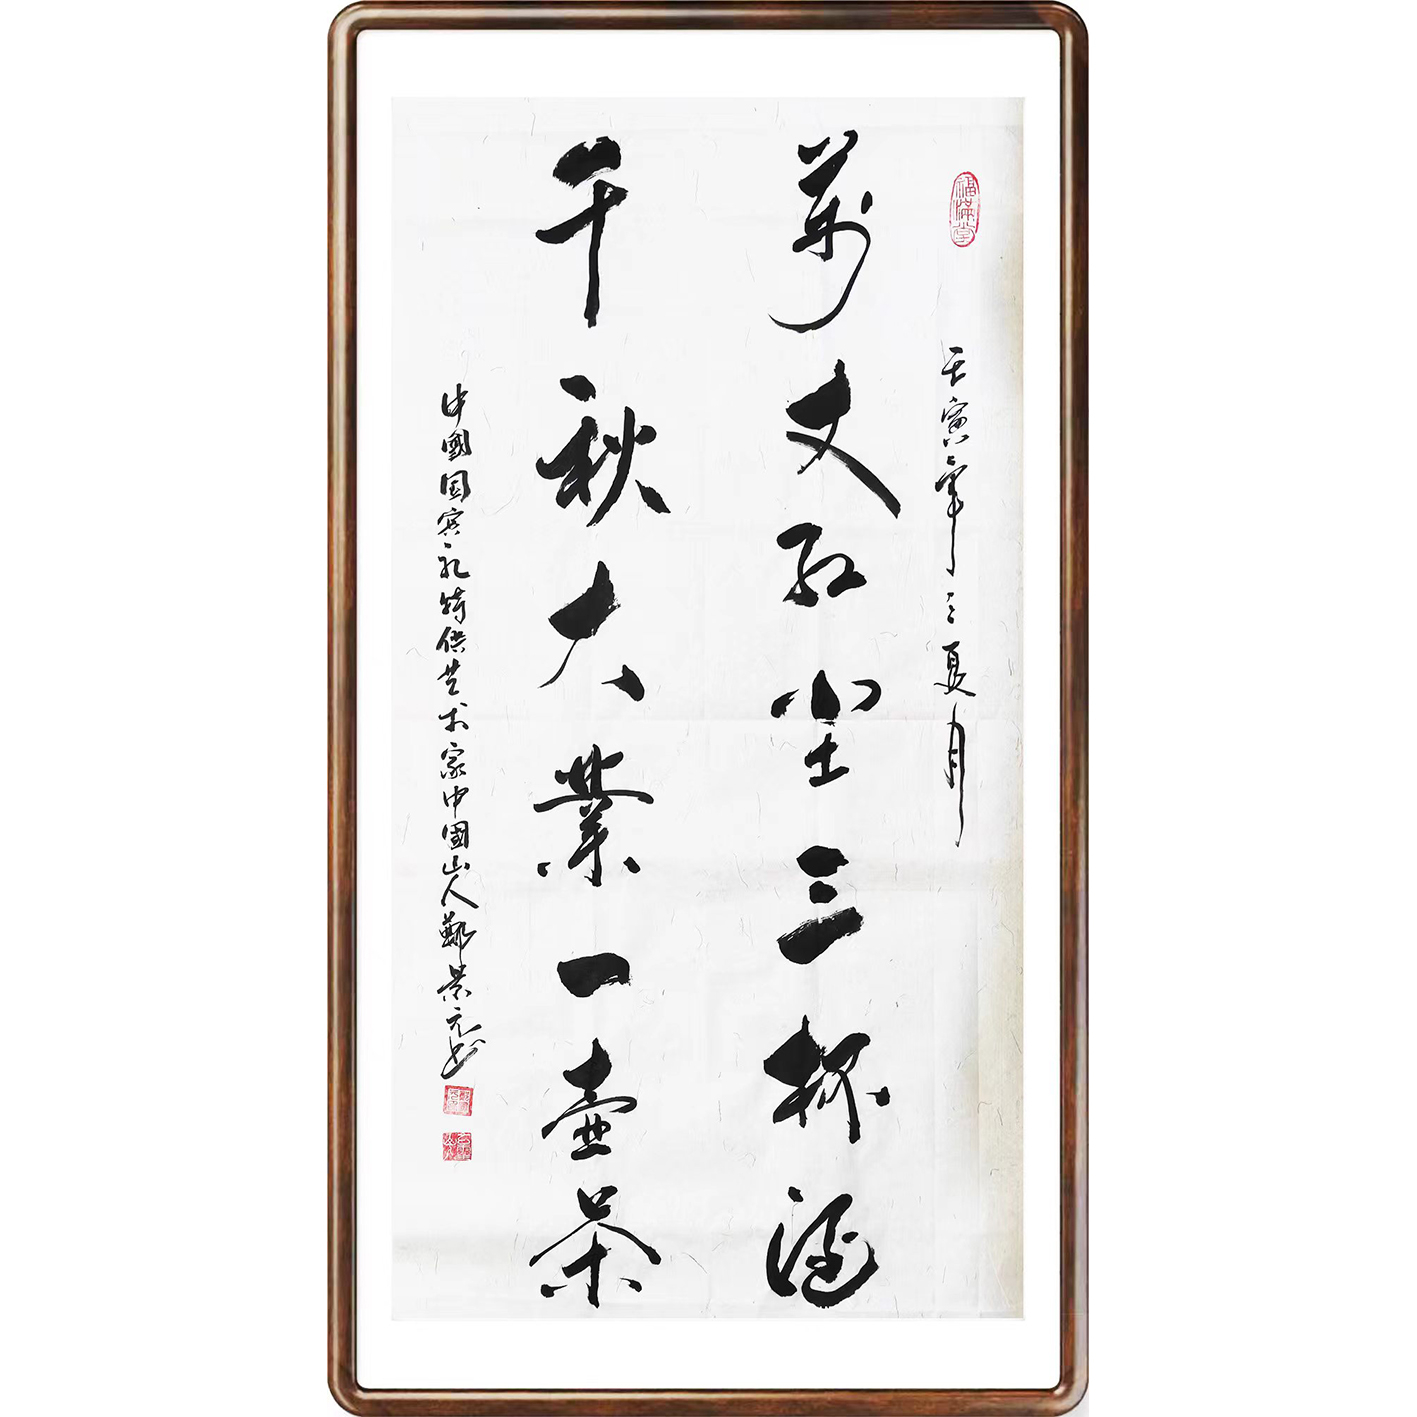 福满堂
壬寅年之夏月
萬丈红尘三杯酒
千秋大業一壺茶
中國国宾礼特供艺术家中國山人景元书